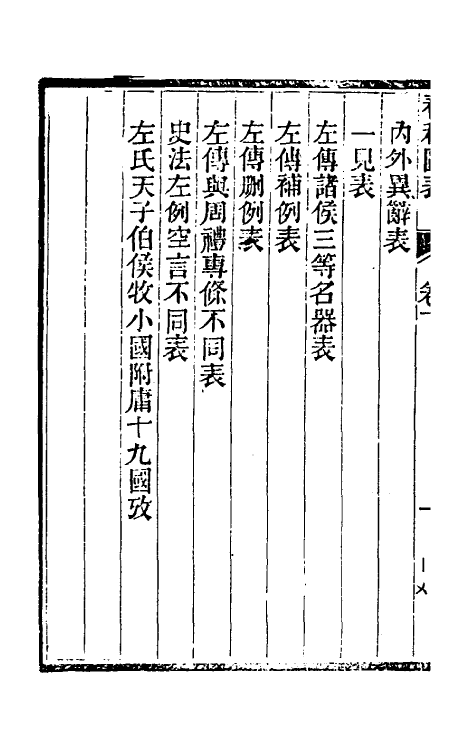 春秋圖表 卷一
內外異辭表
一見表
左傳諸侯三等名器表
左傳補例表
左傳刪例表
左傳與周禮專條不同表
史法左例空言不同表
左氏天子伯侯牧小國附庸十九國攷